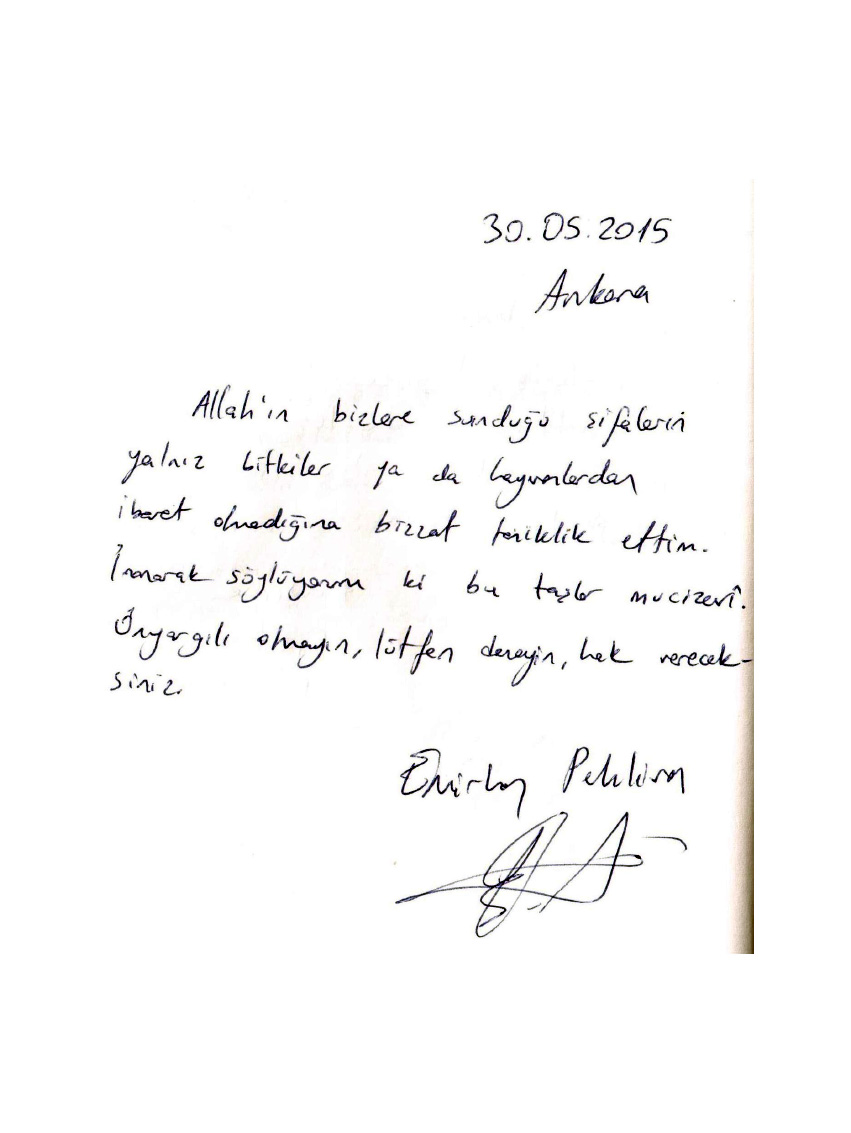 30.05.2015
Ankara
Allah'ın bizlere sunduğu şifâların
yalnız bitkiler ya da hayvanlardan
ibaret olmadığına bizzat teriklik ettim.
İnanarak söylüyorum ki bu taşlar mucizevî.
Önyargılı olmayın, lütfen deneyin, hak verecek-
siniz.
Emirhan Pehlivan